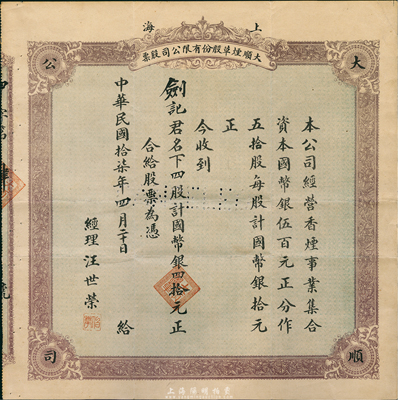 上海
大順煙草股份有限公司股票
大順公司
本公司經營香煙事業集合
資本國幣銀伍百元正分作
五拾股每股計國幣銀拾元
正
今收到
劍記君名下四股計國幣銀四拾元正
合給股票為憑
中華民國拾柒年四月二十日 給
經理 汪世榮